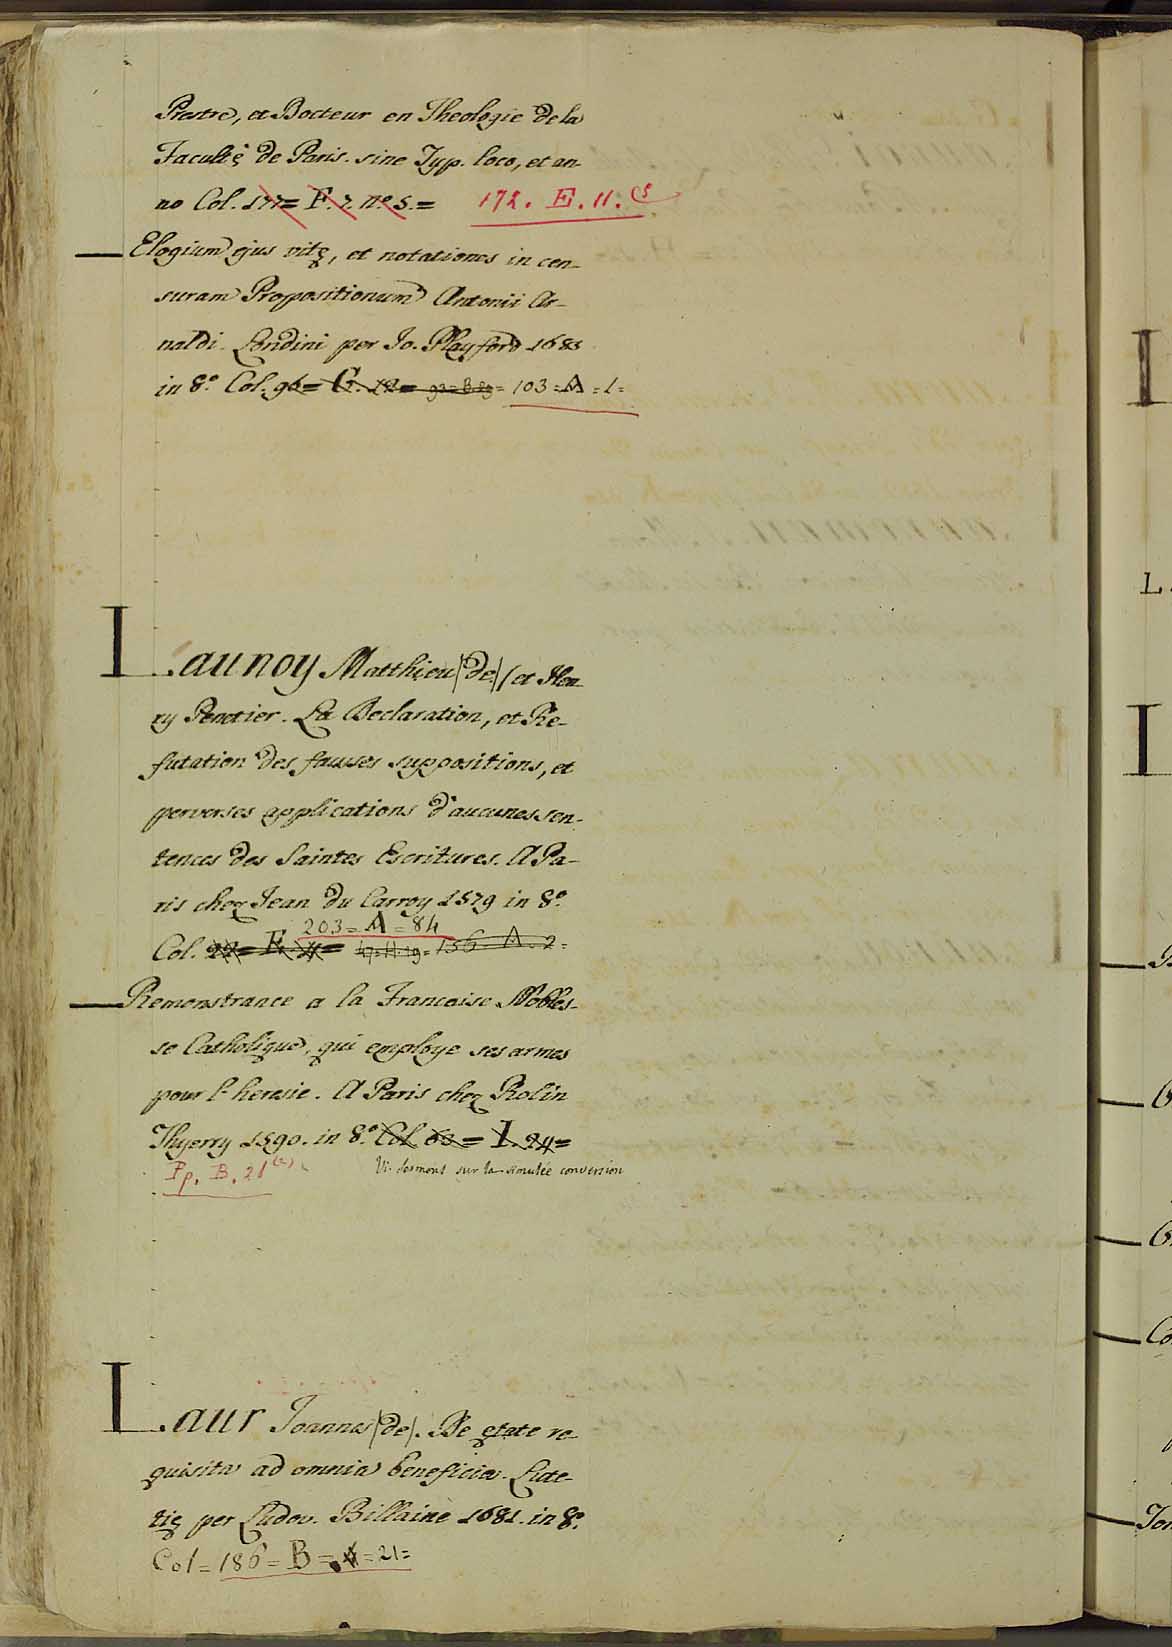 Prestre, et Docteur en Theologie de la
Faculté de Paris. sine Typ. loco, et an-
no Col. 177= F. 7. n.º 5.= 172. E. 11.
— Elogium ejus vitę, et notationes in cen-
suram Propositionum Antonii Ar-
naldi. Londini per Jo. Playford 1683
in 8.º Col. 96= G. 12= 92=B.29= 103=A=1=
Launoy Matthieu (de) (et Hen-
ry Penetier. La Declaration, et Re-
futation des fauses suppositions, et
perverses applications d'aucunes sen-
tences des Saintes Escritures. A Pa-
ris chez Jean du Carroy 1579 in 8.º
203=A=84
Col. 22= F. 4= 47.H.19= 156=A.2=
— Remonstrance a la Francoise Nobles-
se Catholique, qui employe ses armes
pour l'heresie. A Paris chez Rolin
Thyerry 1590. in 8.º Col. 60= I. 24=
Pp. B. 21 Vi. sermons sur la simulée conversion
Laur Joannes (de). De ętate re-
quisita ad omnia beneficia. Lute-
tię per Ludov. Billaine 1681. in 8.º
Col=186=B= =21=
L.